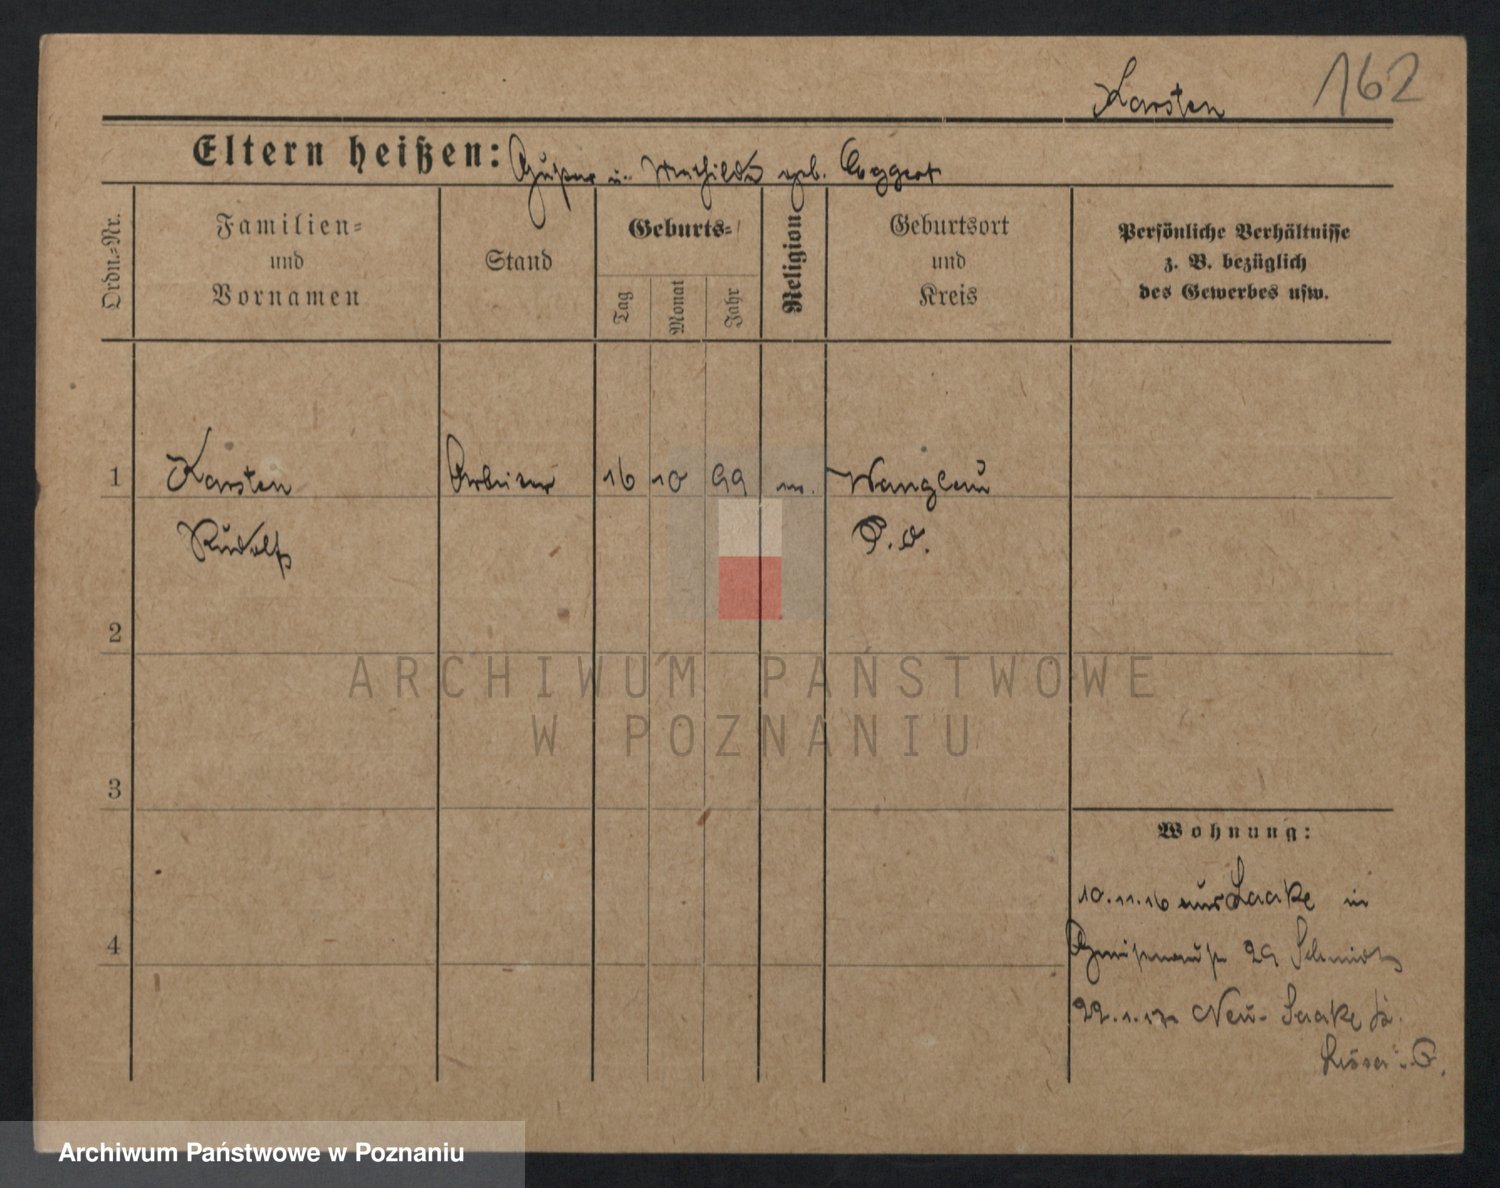 Karsten 162
Eltern heißen: Gustav u. Mathilde geb. Eggert
Ordn.=Nr.
Familien=
und
Vornamen
Stand
Geburts=
Tag
Monat
Jahr
Religion
Geburtsort
und
Kreis
Persönliche Verhältnisse
z. B. bezüglich
des Gewerbes usw.
1 Karsten Arbeiter 16 10 99
Rudolf P. O.
2
3
4
Wohnung:
10.11.16 aus Laake in
29 Schmidt
22.1.17 Neu-Laake
ARCHIWUM PAŃSTWOWE
W POZNANIU
Archiwum Państwowe w Poznaniu